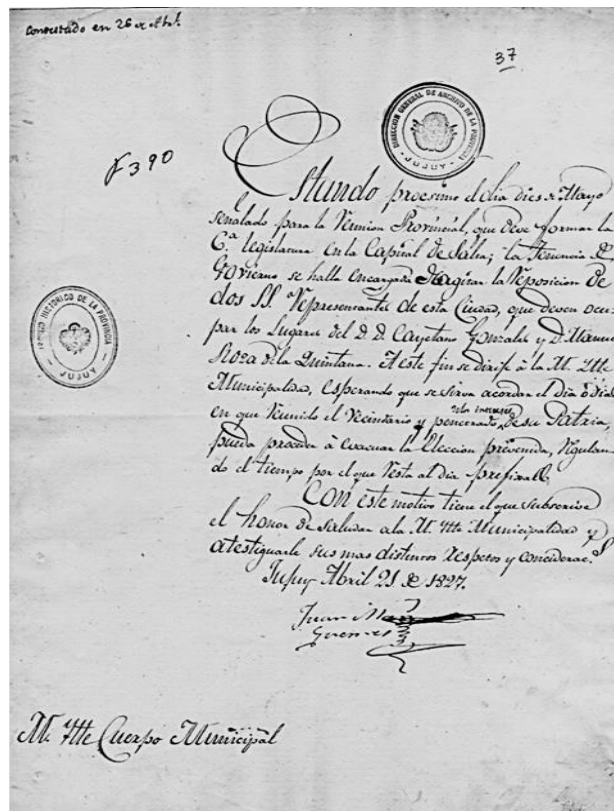 Contestado en 26 de Abl.
37
DIRECCION GENERAL DE ARCHIVO DE LA PROVINCIA
JUJUY
F 390
Estando procsimo el dia dies de Mayo
señalado para la Reunion Provincial, que deve formar la
6.a legislatura en la Capital de Salta; la Tenencia de
Govierno se halla encargada de la Reposicion de
dos SS. Representantes de esta Ciudad, que deven ocu-
par los Lugares del D. D. Cayetano Gonzales y D. Manuel
Roza de la Quintana. A este fin se dirije à la M. Iltte
Municipalidad, esperando que se sirva acordar el dia ó dias
en que Reunido el Vecindario y penetrado de su Patria,
pueda proceder à evacuar la Eleccion prevenida, Regulan-
do el tiempo por el que Resta al dia prefixado,
Con este motivo tiene el que subscrive
el honor de saludar a la M. Iltte Municipalidad y
atestiguarle sus mas distintos Respetos y considerac.s
Jujuy Abril 21 de 1827.
Juan Man
Guemes
ARCHIVO HISTORICO DE LA PROVINCIA
JUJUY
M. Iltte Cuerpo Municipal